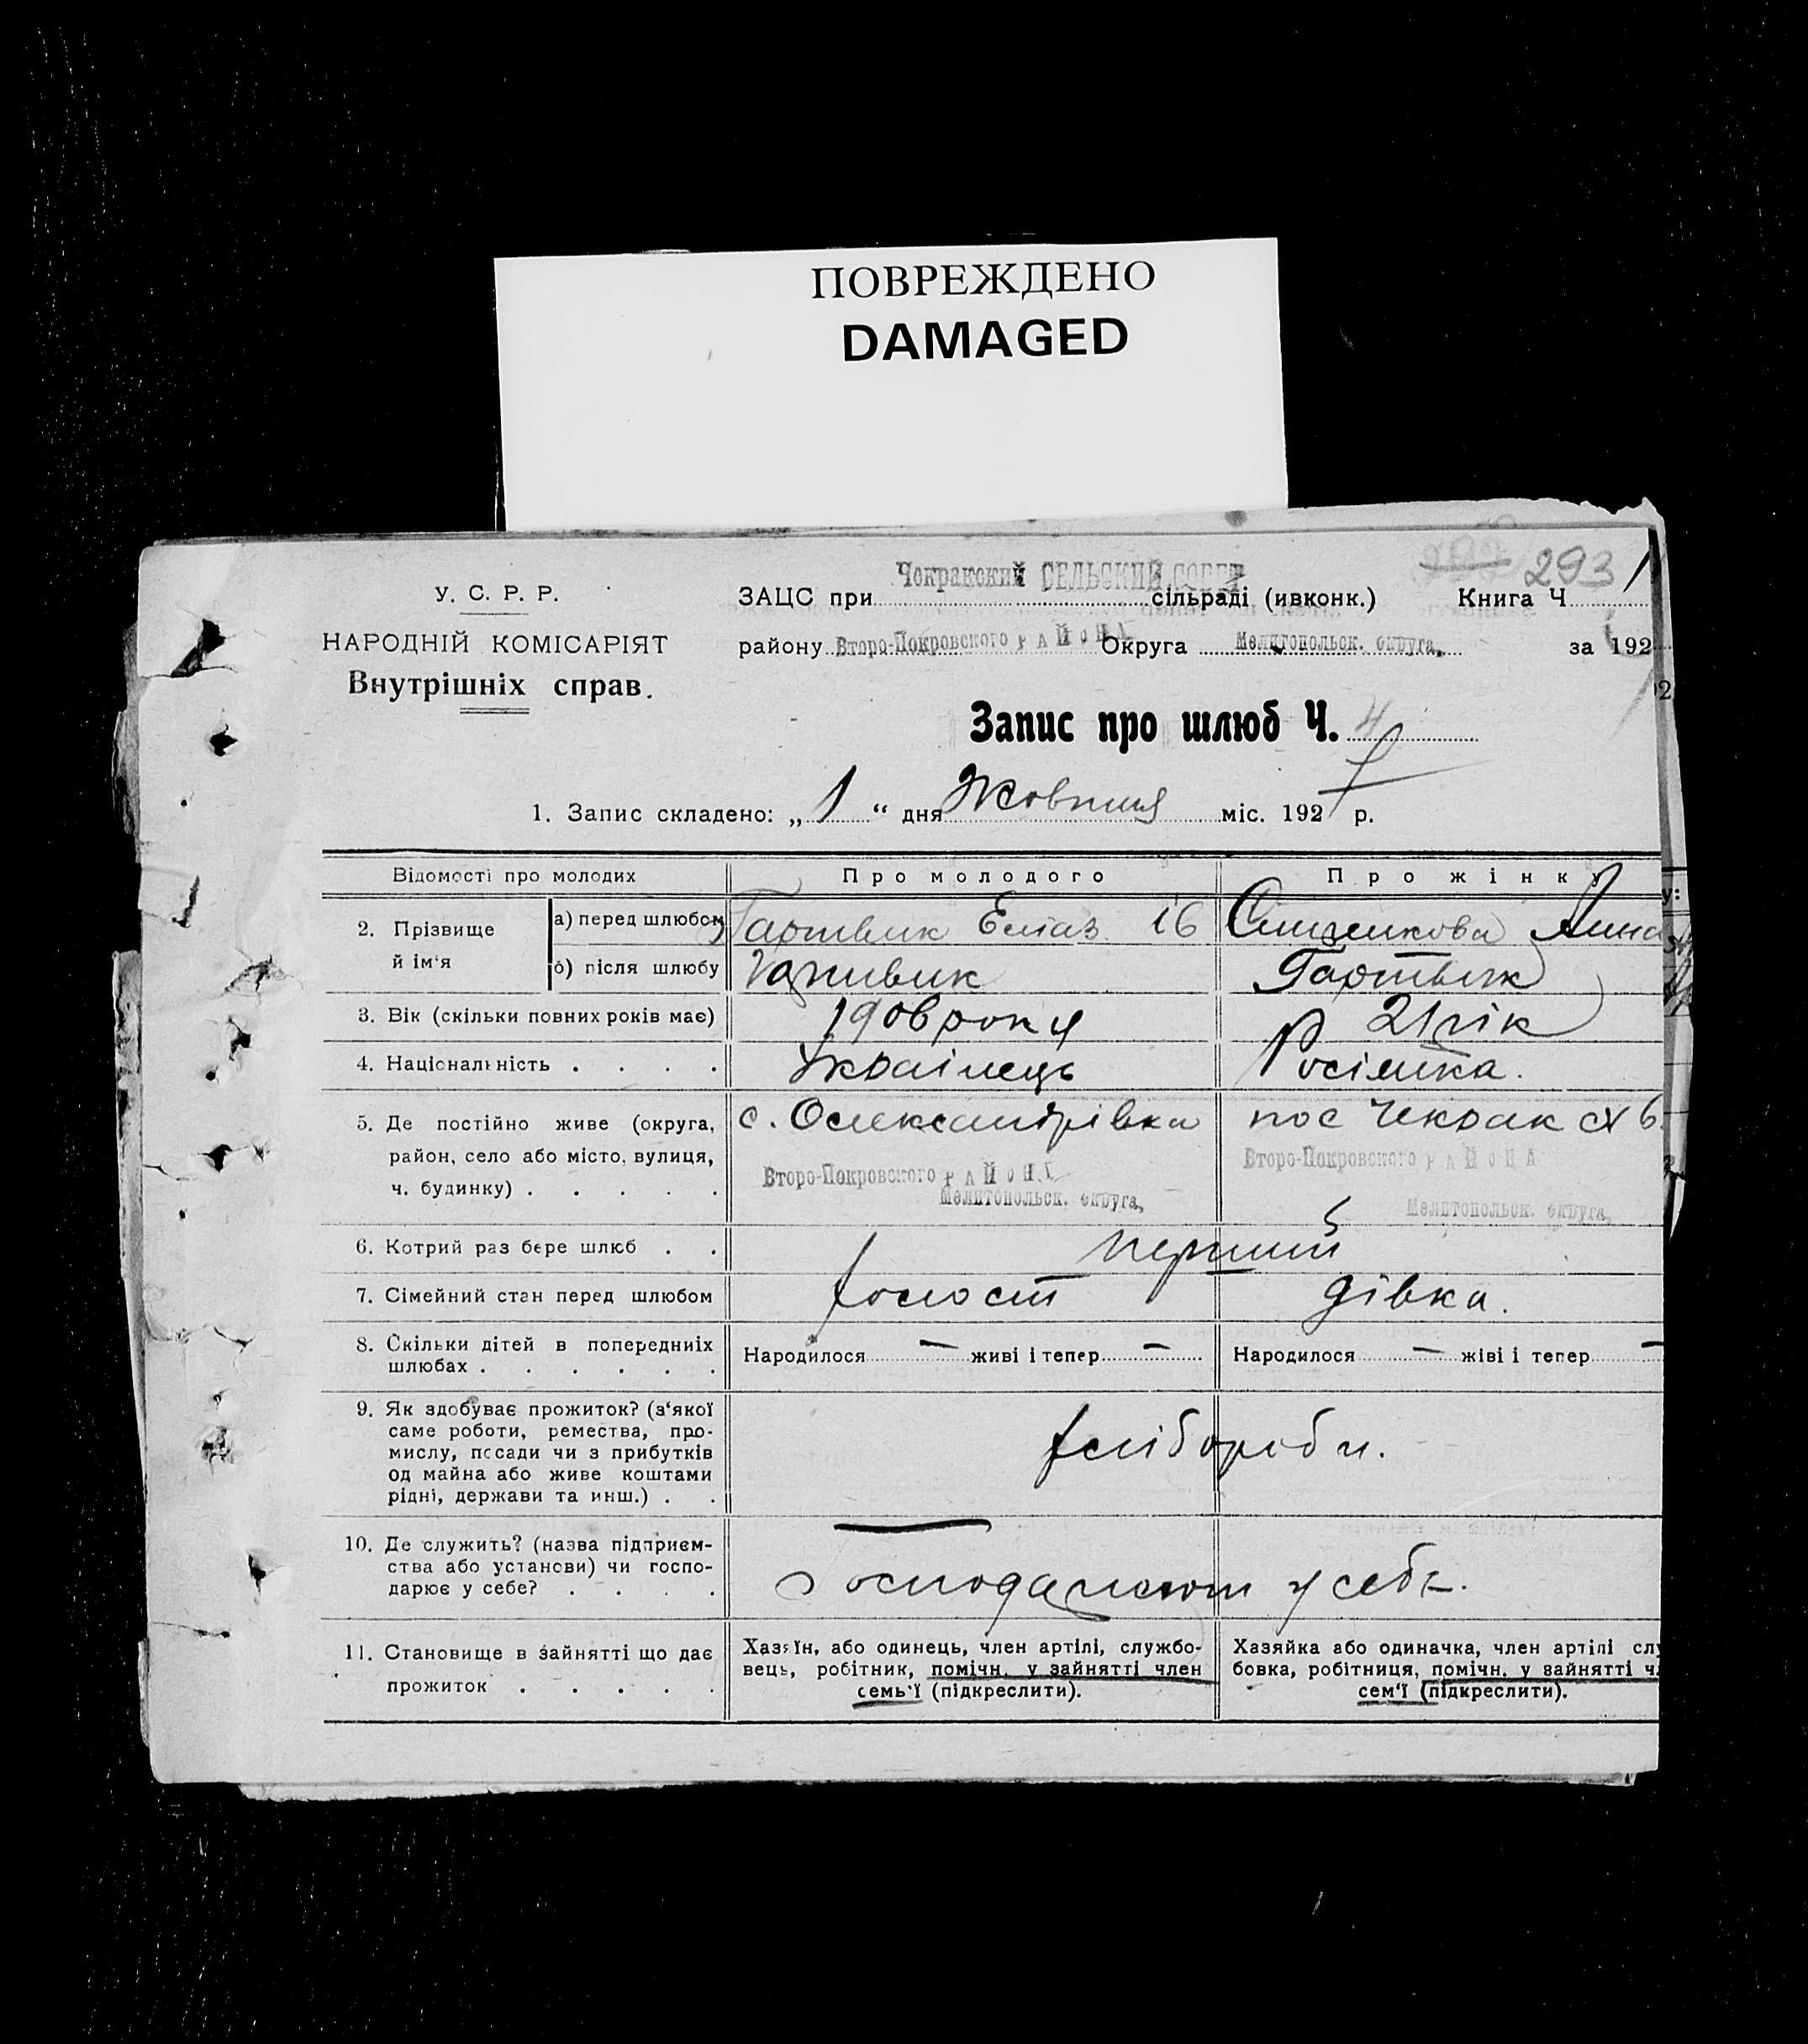 ПОВРЕЖДЕНО
DAMAGED
293
У. С. Р. Р.
НАРОДНІЙ КОМІСАРІЯТ
Внутрішніх справ.
Чокракский СЕЛЬСКИЙ СОВЕТ
ЗАЦС при сільраді (ивконк.) Книга Ч
району Второ-Покровского РАЙОНА Округа Мелитопольск. округа. за 192
Запис про шлюб Ч. 4
1. Запис складено: „ 1 “ дня Жовтня міс. 1927 р.
Відомості про молодих Про молодого Про жінку
2. Прізвище й ім'я
а) перед шлюбом Гартвик Анна
б) після шлюбу Гартвик Гартвик
3. Вік (скільки повних років має) 1906 року 21 рік
4. Національність . . . . Українець Росіянка.
5. Де постійно живе (округа, район, село або місто, вулиця, ч. будинку) . . . . .
с. Олександрівка
Второ-Покровского РАЙОНА
Мелитопольск. округа,
пос Чекрак
Второ-Покровского РАЙОНА
Мелитопольск. округа,
6. Котрий раз бере шлюб . . перший
7. Сімейний стан перед шлюбом холост дівка.
8. Скільки дітей в попередниіх шлюбах . . . . . .
Народилося — живі і тепер —
Народилося — жіві і тепер —
9. Як здобуває прожиток? (з'якої
саме роботи, ремества, про-
мислу, посади чи з прибутків
од майна або живе коштами
рідні, держави та инш.) . .
хлібороби.
10. Де служить? (назва підприєм-
ства або установи) чи госпо-
дарює у себе? . . . .
господарюют у себе.
11. Становище в зайнятті що дає
прожиток . . . . .
Хазяїн, або одинець, член артілі, службо-
вець, робітник, помічн. у зайнятті член
семь'ї (підкреслити).
Хазяйка або одиначка, член артілі слу
бовка, робітниця, помічн. у зайнятті чл
сем'ї (підкреслити).